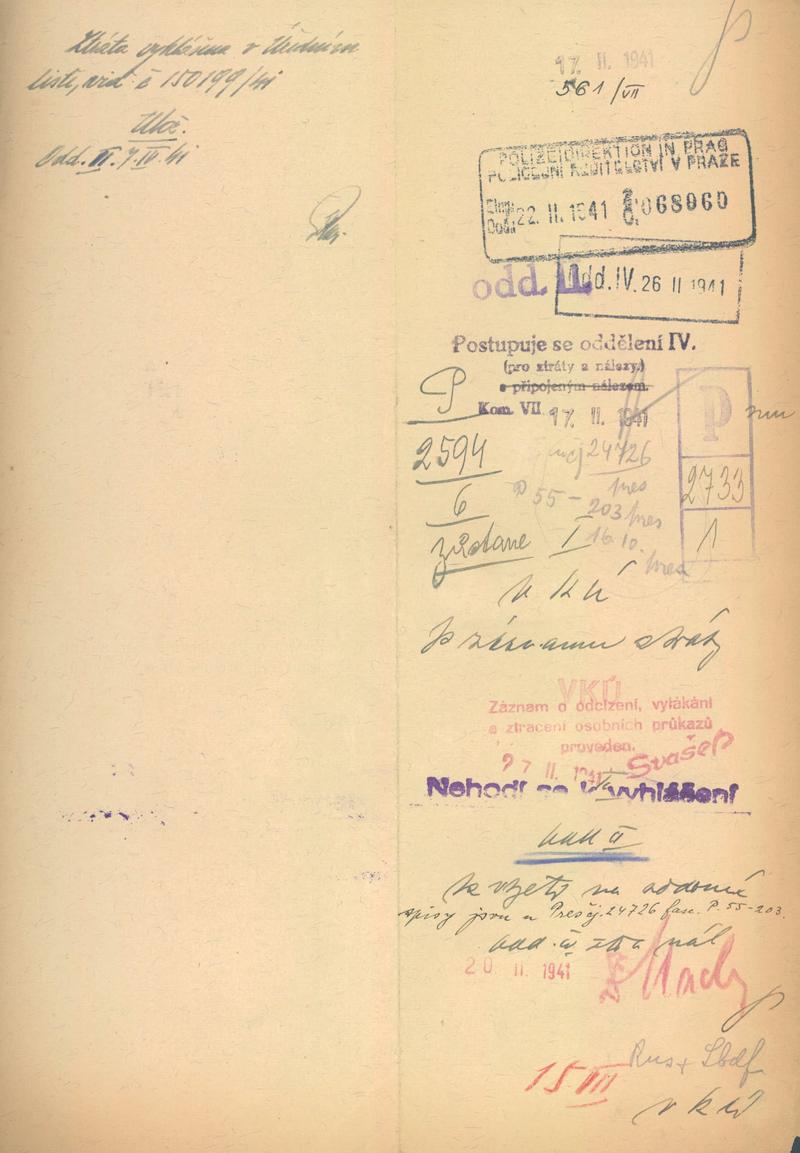 Ztráta vyhlášena v Úředním
listě, viz č 150199/41
Odd. II. 7.IV.41
17. II. 1941
561/VII
POLIZEIDIREKTION IN PRAG
POLICEJNÍ ŘEDITELSTVÍ V PRAZE
22. II. 1941 068960
odd. II.
Odd. IV. 26 II 1941
Postupuje se oddělení IV.
(pro ztráty a nálezy)
s připojeným nálezem.
Kom. VII 17. II. 1941
P
2594
6
zůstane I
čj 24726
pres
P 55-
203 pres
16.10.
pres
P
2733
1
V KÚ
k záznamu ztráty
VKÚ
Záznam o odcizení, vylákání
a ztracení osobních průkazů
proveden.
27 II. 1941
Svašek
Nehodí se k vyhlášení
odd II
spisy jsou u Pres.čj. 24726 fasc. P. 55-203.
20 II. 1941
15 III